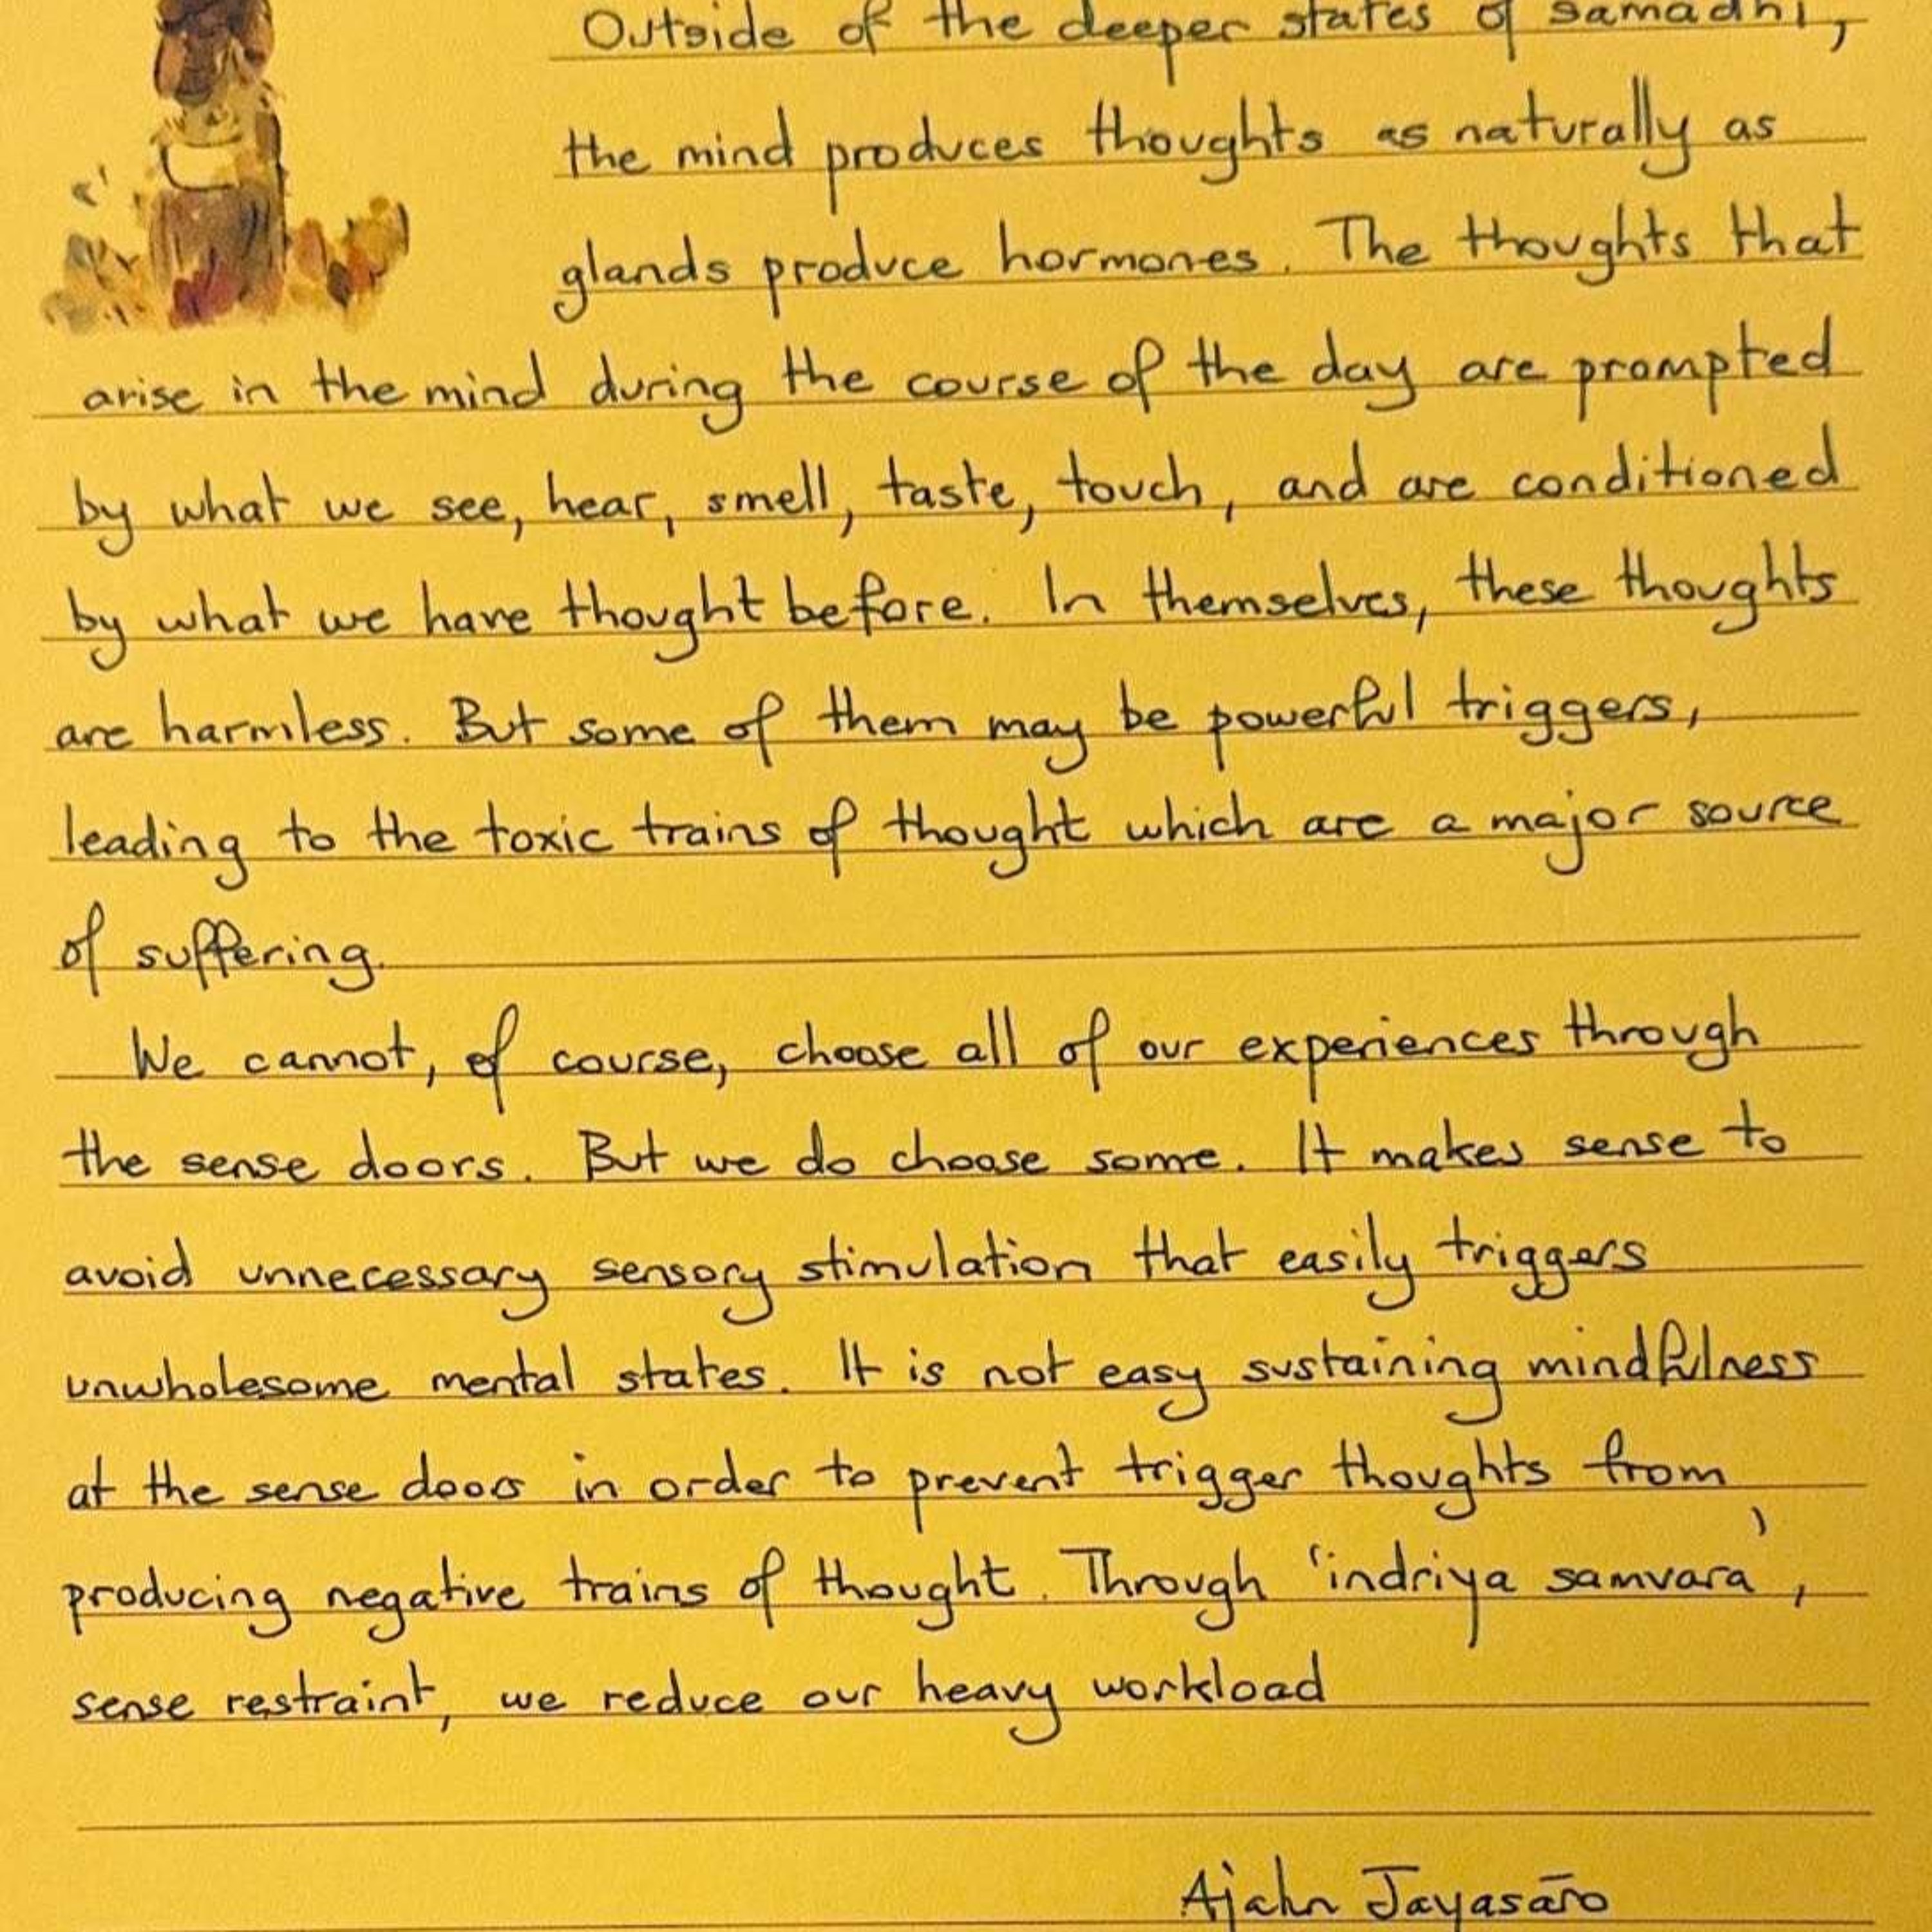 Outside of the deeper states of samadhi,
the mind produces thoughts as naturally as
glands produce hormones. The thoughts that
arise in the mind during the course of the day are prompted
by what we see, hear, smell, taste, touch, and are conditioned
by what we have thought before. In themselves, these thoughts
are harmless. But some of them may be powerful triggers,
leading to the toxic trains of thought which are a major source
of suffering.
We cannot, of course, choose all of our experiences through
the sense doors. But we do choose some. It makes sense to
avoid unnecessary sensory stimulation that easily triggers
unwholesome mental states. It is not easy sustaining mindfulness
at the sense doors in order to prevent trigger thoughts from
producing negative trains of thought. Through 'indriya samvara',
sense restraint, we reduce our heavy workload
Ajahn Jayasāro